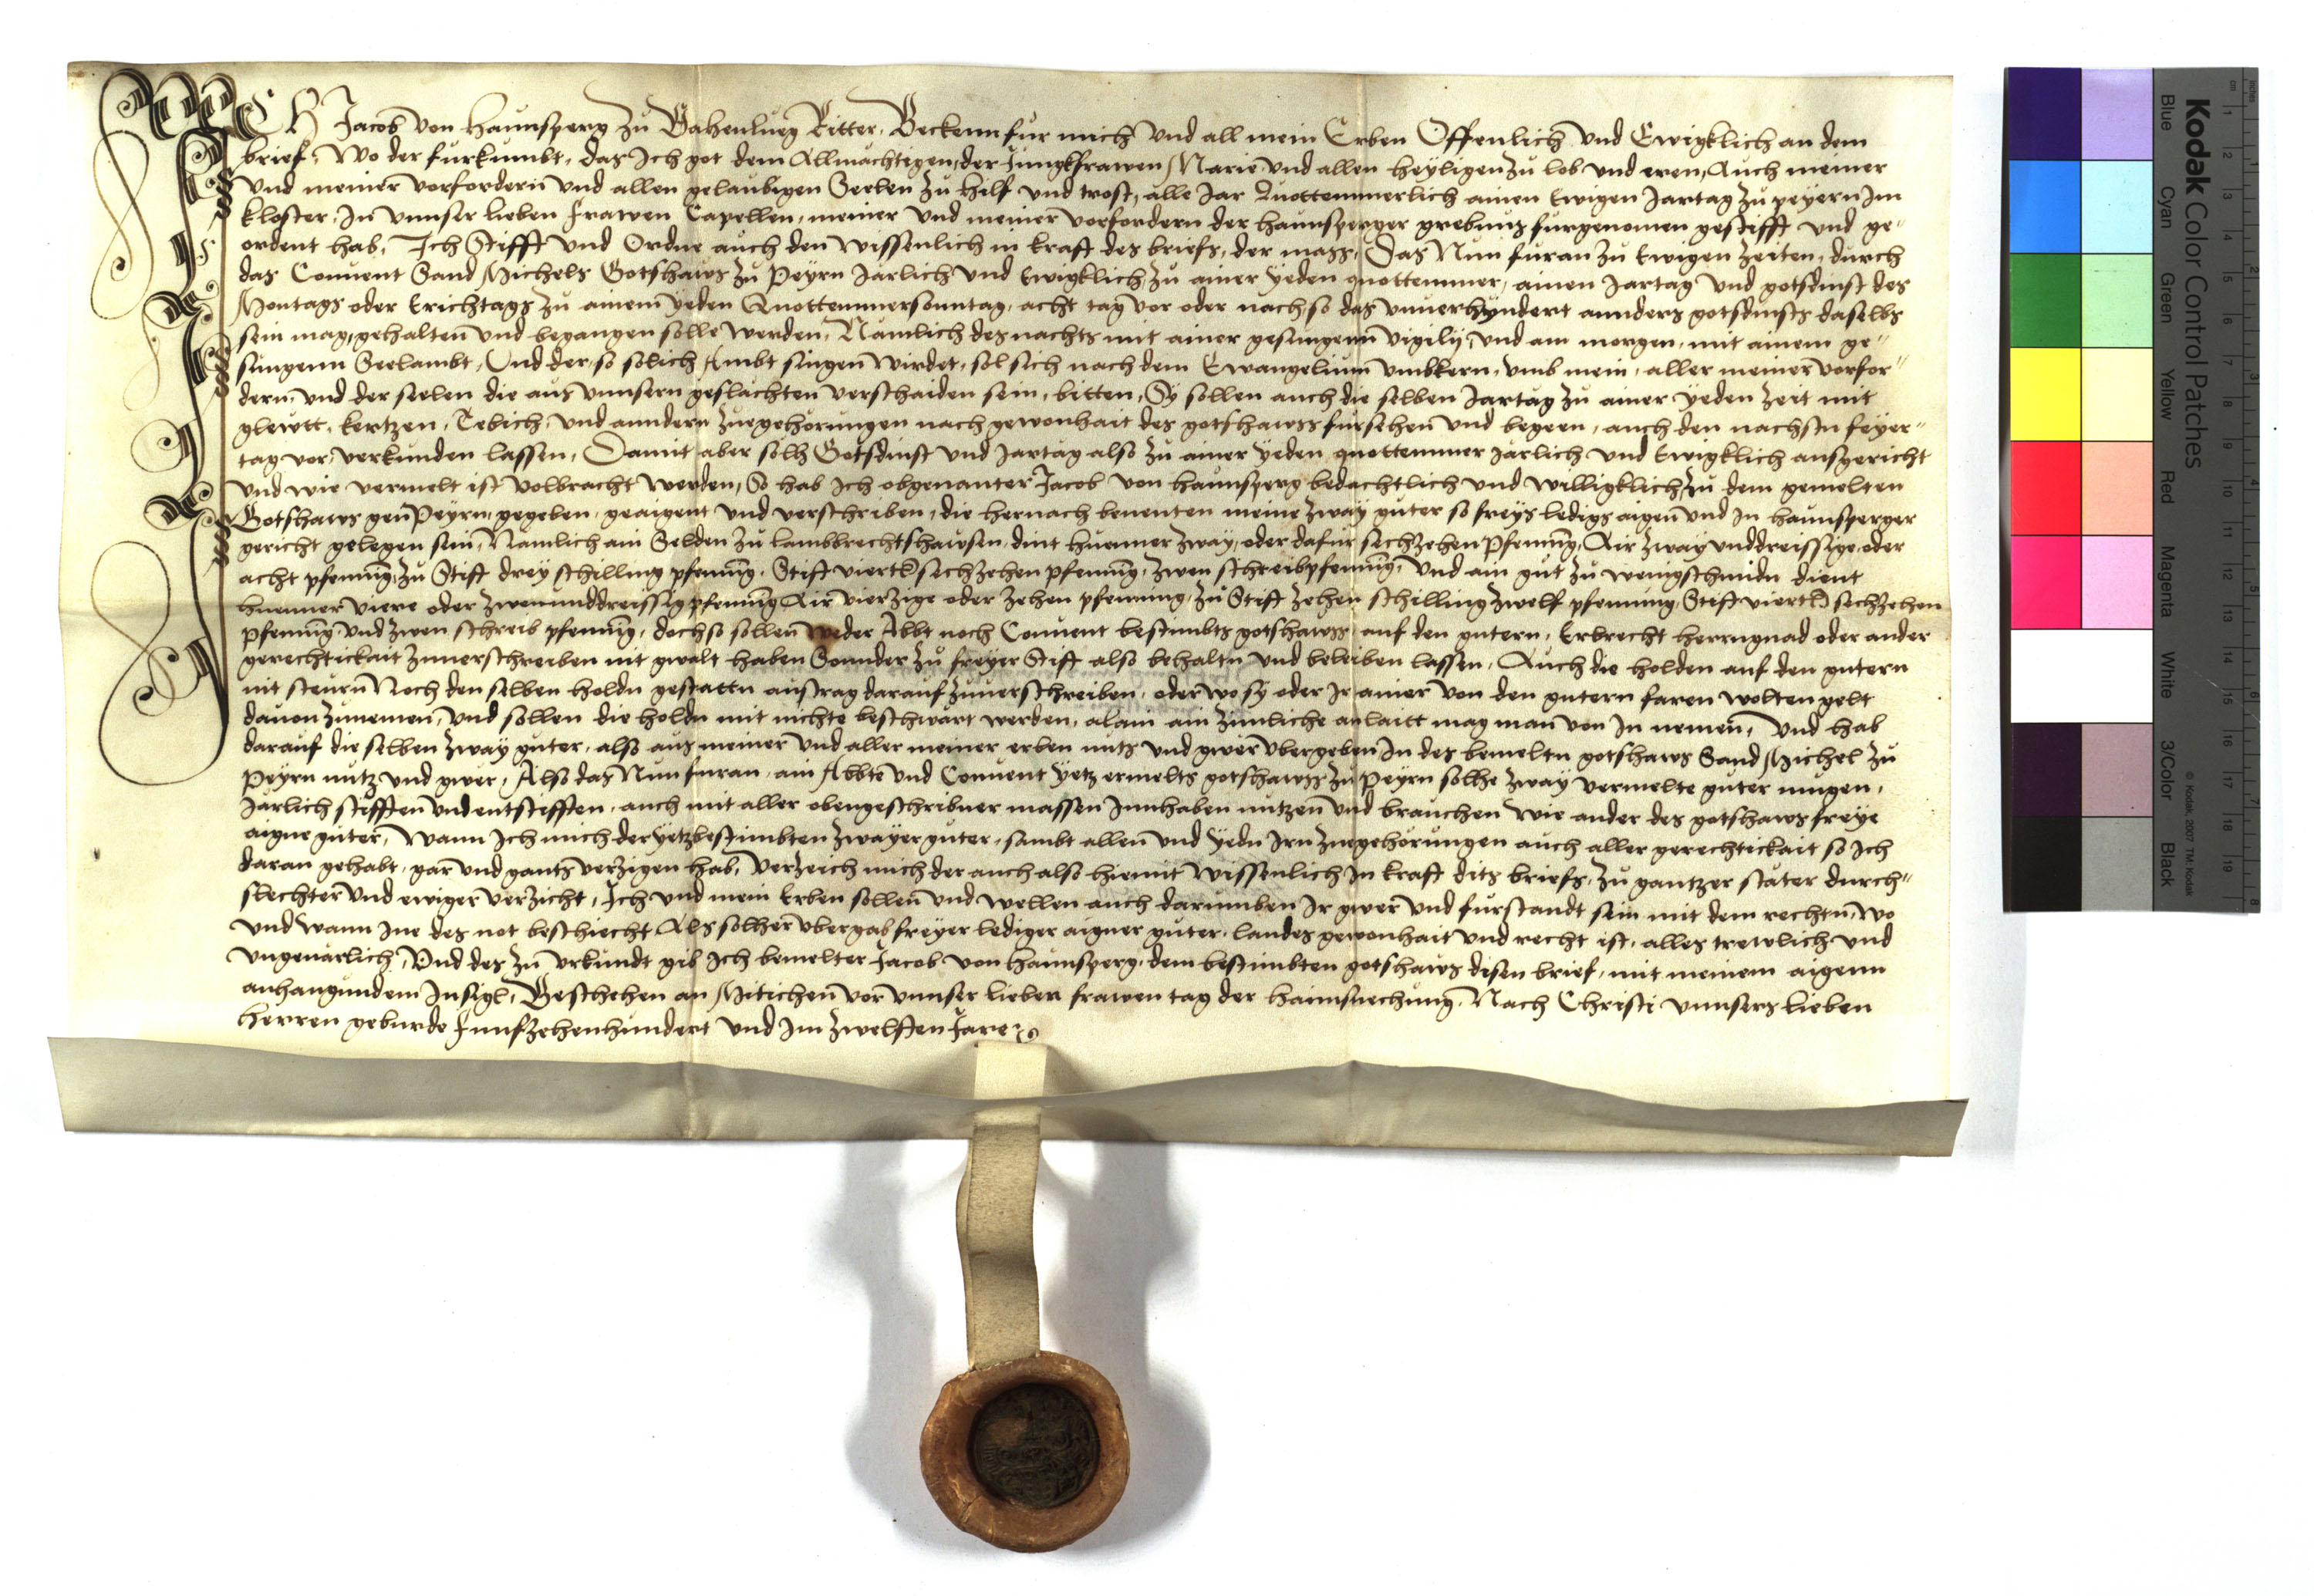 Ich Jacob von Haunsperg zu Vahenlueg Ritter, Beckenn fur mich und all mein Erben Offenlich und Ewigklich an dem
brief, Wo der furkumbt, das Ich got dem Allmachtigen, der Jungkfrawen Marie, und allen heyligen zu lob und eren, Auch meiner
und meiner vorfordern und allen gelaubigen Seelen zu hilf und trost, alle Jar Quottemmerlich ainen Ewigen Jartag zu peyern Im
kloster, In unnser lieben frawen Capellen, meiner und meiner vorfordern der haunsperger grebnus furgenomen gestifft und ge-
ordent hab, Ich Stifft und Ordne auch den wissenlich in kraft des briefs, der mass, Das Nun furan zu Ewigen zeiten, durch
das Convent Sand Michels Gotshaws zu Peyrn Jarlich und Ewigklich zu ainer yeden quottemmer, ainen Jartag und gotsdinst des
Montags oder Erichtags zu ainem yeden Quottemmersonntag, acht tag vor oder nach, so das unverhyndert annders gotsdinsts daselbs
sein mag, gehalten und begangen solle werden, Namlich des nachts mit ainer gesungenn vigilij, und am morgen, mit ainem ge-
sungenn Seelambt, Und der, so solich Ambt singen wirdet, sol sich nach dem Ewangelium umbkern, umb mein, aller meiner vorfor-
dern, und der seelen die aus unnserm geslachten verschaiden sein, bitten, Sy sollen auch die selben Jartag zu ainer yeden zeit mit
glewtt, kertzen, Tebich, und anndern zuegehorungen nach gewonhait des gotshawss fursehen und begeen, auch den nachstn feyer-
tag vor, verkunden lassen, Damit aber solh Gotsdinst und Jartag also zu ainer yeden quottemmer jarlich und Ewigklich ausgericht
und wie vermelt ist volbracht werden, So hab Ich obgenanter Jacob von Haunsperg bedachtlich und willigklich, zu dem gemelten
Gotshaws gen Peyrn, gegeben, geaigent und verschriben, die hernach benenten meine zway guter so freys ledigs aigen und In haunsperger
gericht gelegen sein, Namlich ain Selden zu lambbrechtshawsen, dint huenner zway, oder dafur sechzehen Pfenning, Air zway unddreissige, oder
acht pfenning, zu Stift drey schilling pfenning, Stift viertl sechzehen pfenning, zwen schreibpfenning, Und ain gut zu wenigschmidn dient
huenner viere oder zwenunddreissig pfenning Air vierzige oder zehen pfenning, zu Stift zehen schilling zwelf pfenning, Stift viertl sechzehen
Pfenning, und zwen schreib pfenning, doch so sollen weder Abbt noch Convent bestimbts gotshawss auf den gutern, Erbrecht herrngnad oder ander
gerechtickait zuverschreiben nit gwalt haben Sonnder zu freyer Stift also behaltn und beleiben lassen, Auch die holden auf den gutern
nit steurn Noch den selben holdn gestattn austrag darauf zuverschreiben, oder wo sy oder Ir ainer von den gutern faren wolten gelt
davon zunemen, und sollen die holdn mit nichte beschwart werden, alain ain zimliche anlaitt mag man von In nemen, Und hab
darauf die selben zway guter, also aus meiner und aller meiner erben nuts und gwer ubergeben In des bemeltn gotshaws Sand Michel zu
Peyrn nutz und gwer, Also das Nun furan ain Abbte und Convent yetz ermelts gotshawss zu Peyrn solhe zway vermelte guter mugen,
Jarlich stifften und entstifften, auch mit aller obengeschribner massen Innhaben nutzen und brauchen wie ander des gotshaws freye
aigne guter, Wann Ich mich der yetzbestimbten zwayer guter, sambt allen und yedn Irn zuegehorungen auch aller gerechtickait so Ich
daran gehabt, gar und gants verzigen hab, verzeich mich der auch also hiemit wissenlich In kraft dits briefs, zu gantzer stater durch-
slechter und ewiger verzicht, Ich und mein Erben sollen und wellen auch darumben Ir gwer und furstandt sein mit dem rechtn, wo
und wann Ine des not beschiecht Als solher ubergab freyer lediger aigner guter, landes gewonhait und recht ist, alles trewlich und
ungevarlich, Und des zu urkundt gib Ich bemelter Jacob von Haunsperg, dem bestimbten gotshaws disen brief, mit meinem aigenn
anhangundem Insigl, Geschehen an Mitichen vor unnser lieben frawen tag der haimsuechung, Nach Christi unnsers lieben
herren geburde Funfzehenhundert und Im zwelften Jare
Kodak Color Control Patches
Blue Cyan Green Yellow Red Magenta White 3/Color Black
© Kodak, 2007 TM: Kodak